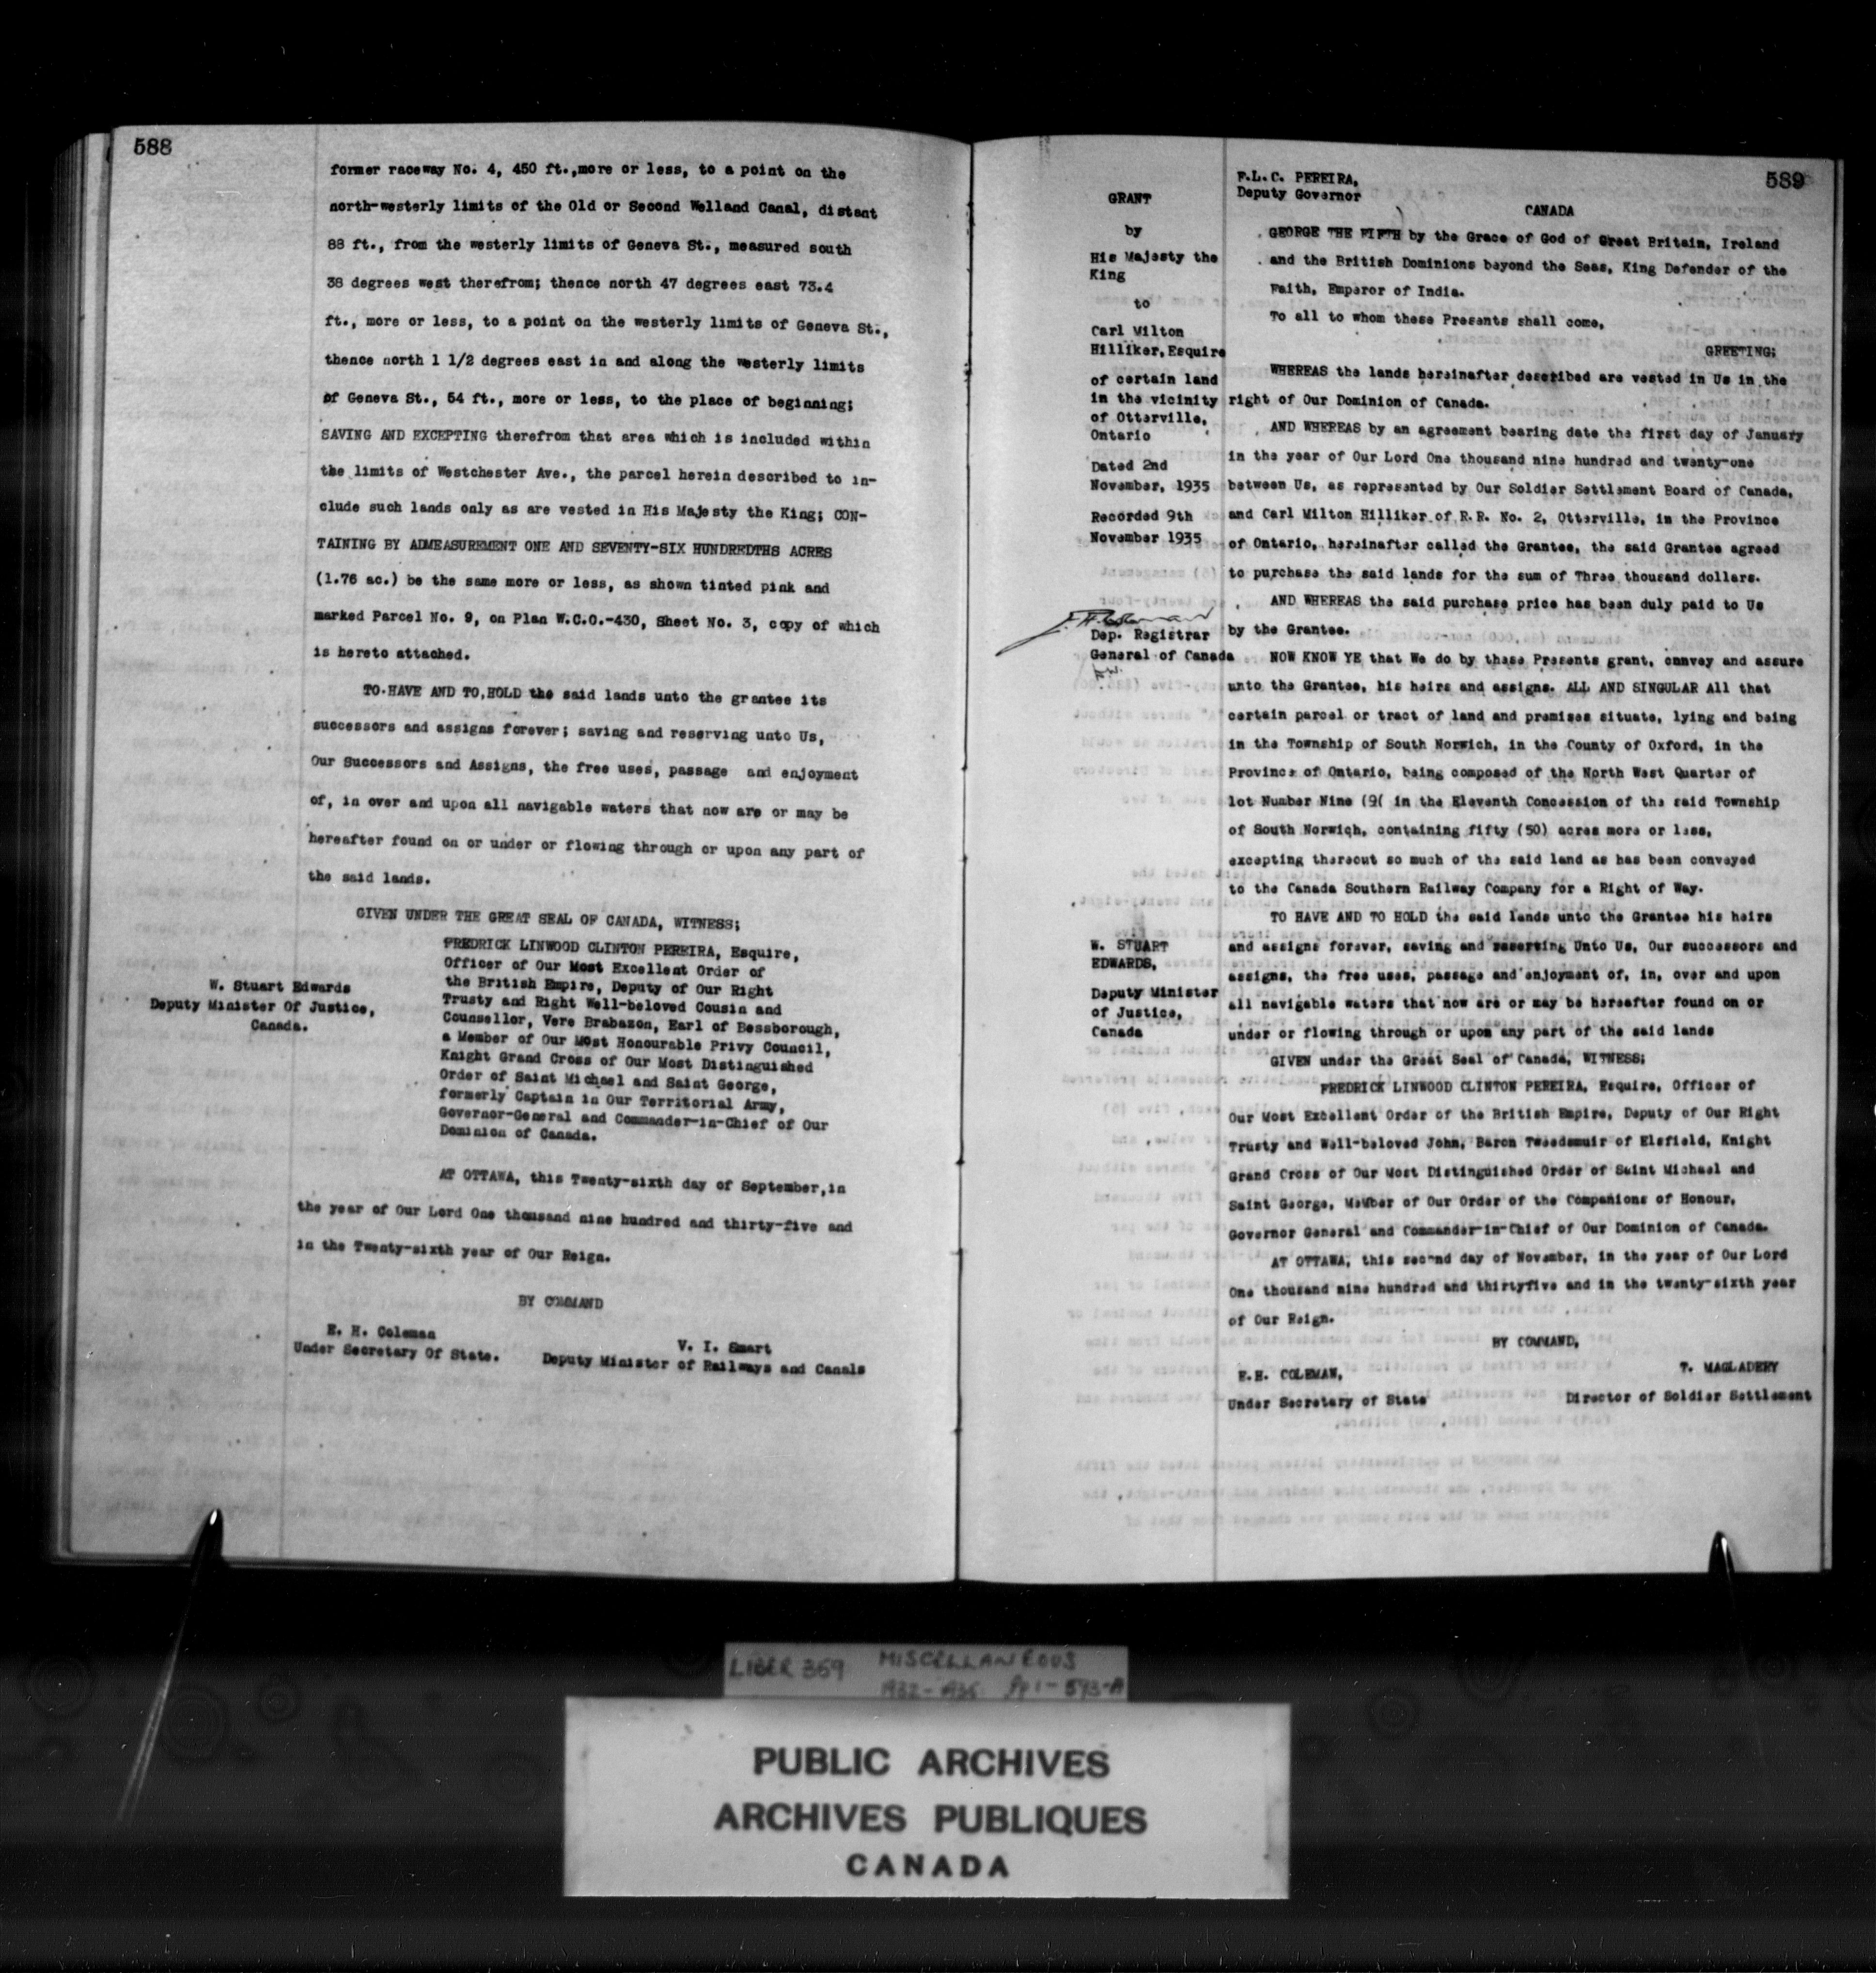 588
former raceway No. 4, 450 ft.,more or less, to a point on the
north-westerly limits of the Old or Second Welland Canal, distant
88 ft., from the westerly limits of Geneva St., measured south
38 degrees west therefrom; thence north 47 degrees east 73.4
ft., more or less, to a point on the westerly limits of Geneva St.,
thence north 1 1/2 degrees east in and along the westerly limits
of Geneva St., 54 ft., more or less, to the place of beginning;
SAVING AND EXCEPTING therefrom that area which is included within
the limits of Westchester Ave., the parcel herein described to in-
clude such lands only as are vested in His Majesty the King; CON-
TAINING BY ADMEASUREMENT ONE AND SEVENTY-SIX HUNDREDTHS ACRES
(1.76 ac.) be the same more or less, as shown tinted pink and
marked Parcel No. 9, on Plan W.C.O.-430, Sheet No. 3, copy of which
is hereto attached.
TO HAVE AND TO HOLD the said lands unto the grantee its
successors and assigns forever; saving and reserving unto Us,
Our Successors and Assigns, the free uses, passage and enjoyment
of, in over and upon all navigable waters that now are or may be
hereafter found on or under or flowing through or upon any part of
the said lands.
GIVEN UNDER THE GREAT SEAL OF CANADA, WITNESS;
FREDRICK LINWOOD CLINTON PEREIRA, Esquire,
Officer of Our Most Excellent Order of
the British Empire, Deputy of Our Right
Trusty and Right Well-beloved Cousin and
Counsellor, Vere Brabazon, Earl of Bessborough,
a Member of Our Most Honourable Privy Council,
Knight Grand Cross of Our Most Distinguished
Order of Saint Michael and Saint George,
formerly Captain in Our Territorial Army,
Governor-General and Commander-in-Chief of Our
Dominion of Canada.
W. Stuart Edwards
Deputy Minister Of Justice,
Canada.
AT OTTAWA, this Twenty-sixth day of September,in
the year of Our Lord One thousand nine hundred and thirty-five and
in the Twenty-sixth year of Our Reign.
BY COMMAND
E. H. Coleman
Under Secretary Of State.
V. I. Smart
Deputy Minister of Railways and Canals
589
GRANT
by
His Majesty the
King
to
Carl Milton
Hilliker, Esquire
of certain land
in the vicinity
of Otterville,
Ontario
Dated 2nd
November, 1935
Recorded 9th
November 1935
Dep. Registrar
General of Canada
W. STUART
EDWARDS,
Deputy Minister
of Justice,
Canada
F.L.C. PEREIRA,
Deputy Governor
CANADA
GEORGE THE FIFTH by the Grace of God of Great Britain, Ireland
and the British Dominions beyond the Seas, King Defender of the
Faith, Emperor of India.
To all to whom these Presents shall come,
GREETING;
WHEREAS the lands hereinafter described are vested in Us in the
right of Our Dominion of Canada.
AND WHEREAS by an agreement bearing date the first day of January
in the year of Our Lord One thousand nine hundred and twenty-one
between Us, as represented by Our Soldier Settlement Board of Canada,
and Carl Milton Hilliker of R.R. No. 2, Otterville, in the Province
of Ontario, hereinafter called the Grantee, the said Grantee agreed
to purchase the said lands for the sum of Three thousand dollars.
AND WHEREAS the said purchase price has been duly paid to Us
by the Grantee.
NOW KNOW YE that We do by these Presents grant, convey and assure
unto the Grantee, his heirs and assigns. ALL AND SINGULAR All that
certain parcel or tract of land and premises situate, lying and being
in the Township of South Norwich, in the County of Oxford, in the
Province of Ontario, being composed of the North West Quarter of
lot Number Nine (9( in the Eleventh Concession of the said Township
of South Norwich, containing fifty (50) acres more or less,
excepting thereout so much of the said land as has been conveyed
to the Canada Southern Railway Company for a Right of Way.
TO HAVE AND TO HOLD the said lands unto the Grantee his heirs
and assigns forever, saving and reserting Unto Us, Our successors and
assigns, the free uses, passage and enjoyment of, in, over and upon
all navigable waters that now are or may be hereafter found on or
under or flowing through or upon any part of the said lands
GIVEN under the Great Seal of Canada, WITNESS;
FREDRICK LINWOOD CLINTON PEREIRA, Esquire, Officer of
Our Most Excellent Order of the British Empire, Deputy of Our Right
Trusty and Well-beloved John, Baron Tweedsmuir of Elsfield, Knight
Grand Cross of Our Most Distinguished Order of Saint Michael and
Saint George, Member of Our Order of the Companions of Honour,
Governor General and Commander-in-Chief of Our Dominion of Canada.
AT OTTAWA, this second day of November, in the year of Our Lord
One thousand nine hundred and thirtyfive and in the twenty-sixth year
of Our Reign.
BY COMMAND,
E.H. COLEMAN,
Under Secretary of State
T. MAGLADERY
Director of Soldier Settlement
LIBER 359 MISCELLANEOUS
1932-1935 pp 1-593-A
PUBLIC ARCHIVES
ARCHIVES PUBLIQUES
CANADA